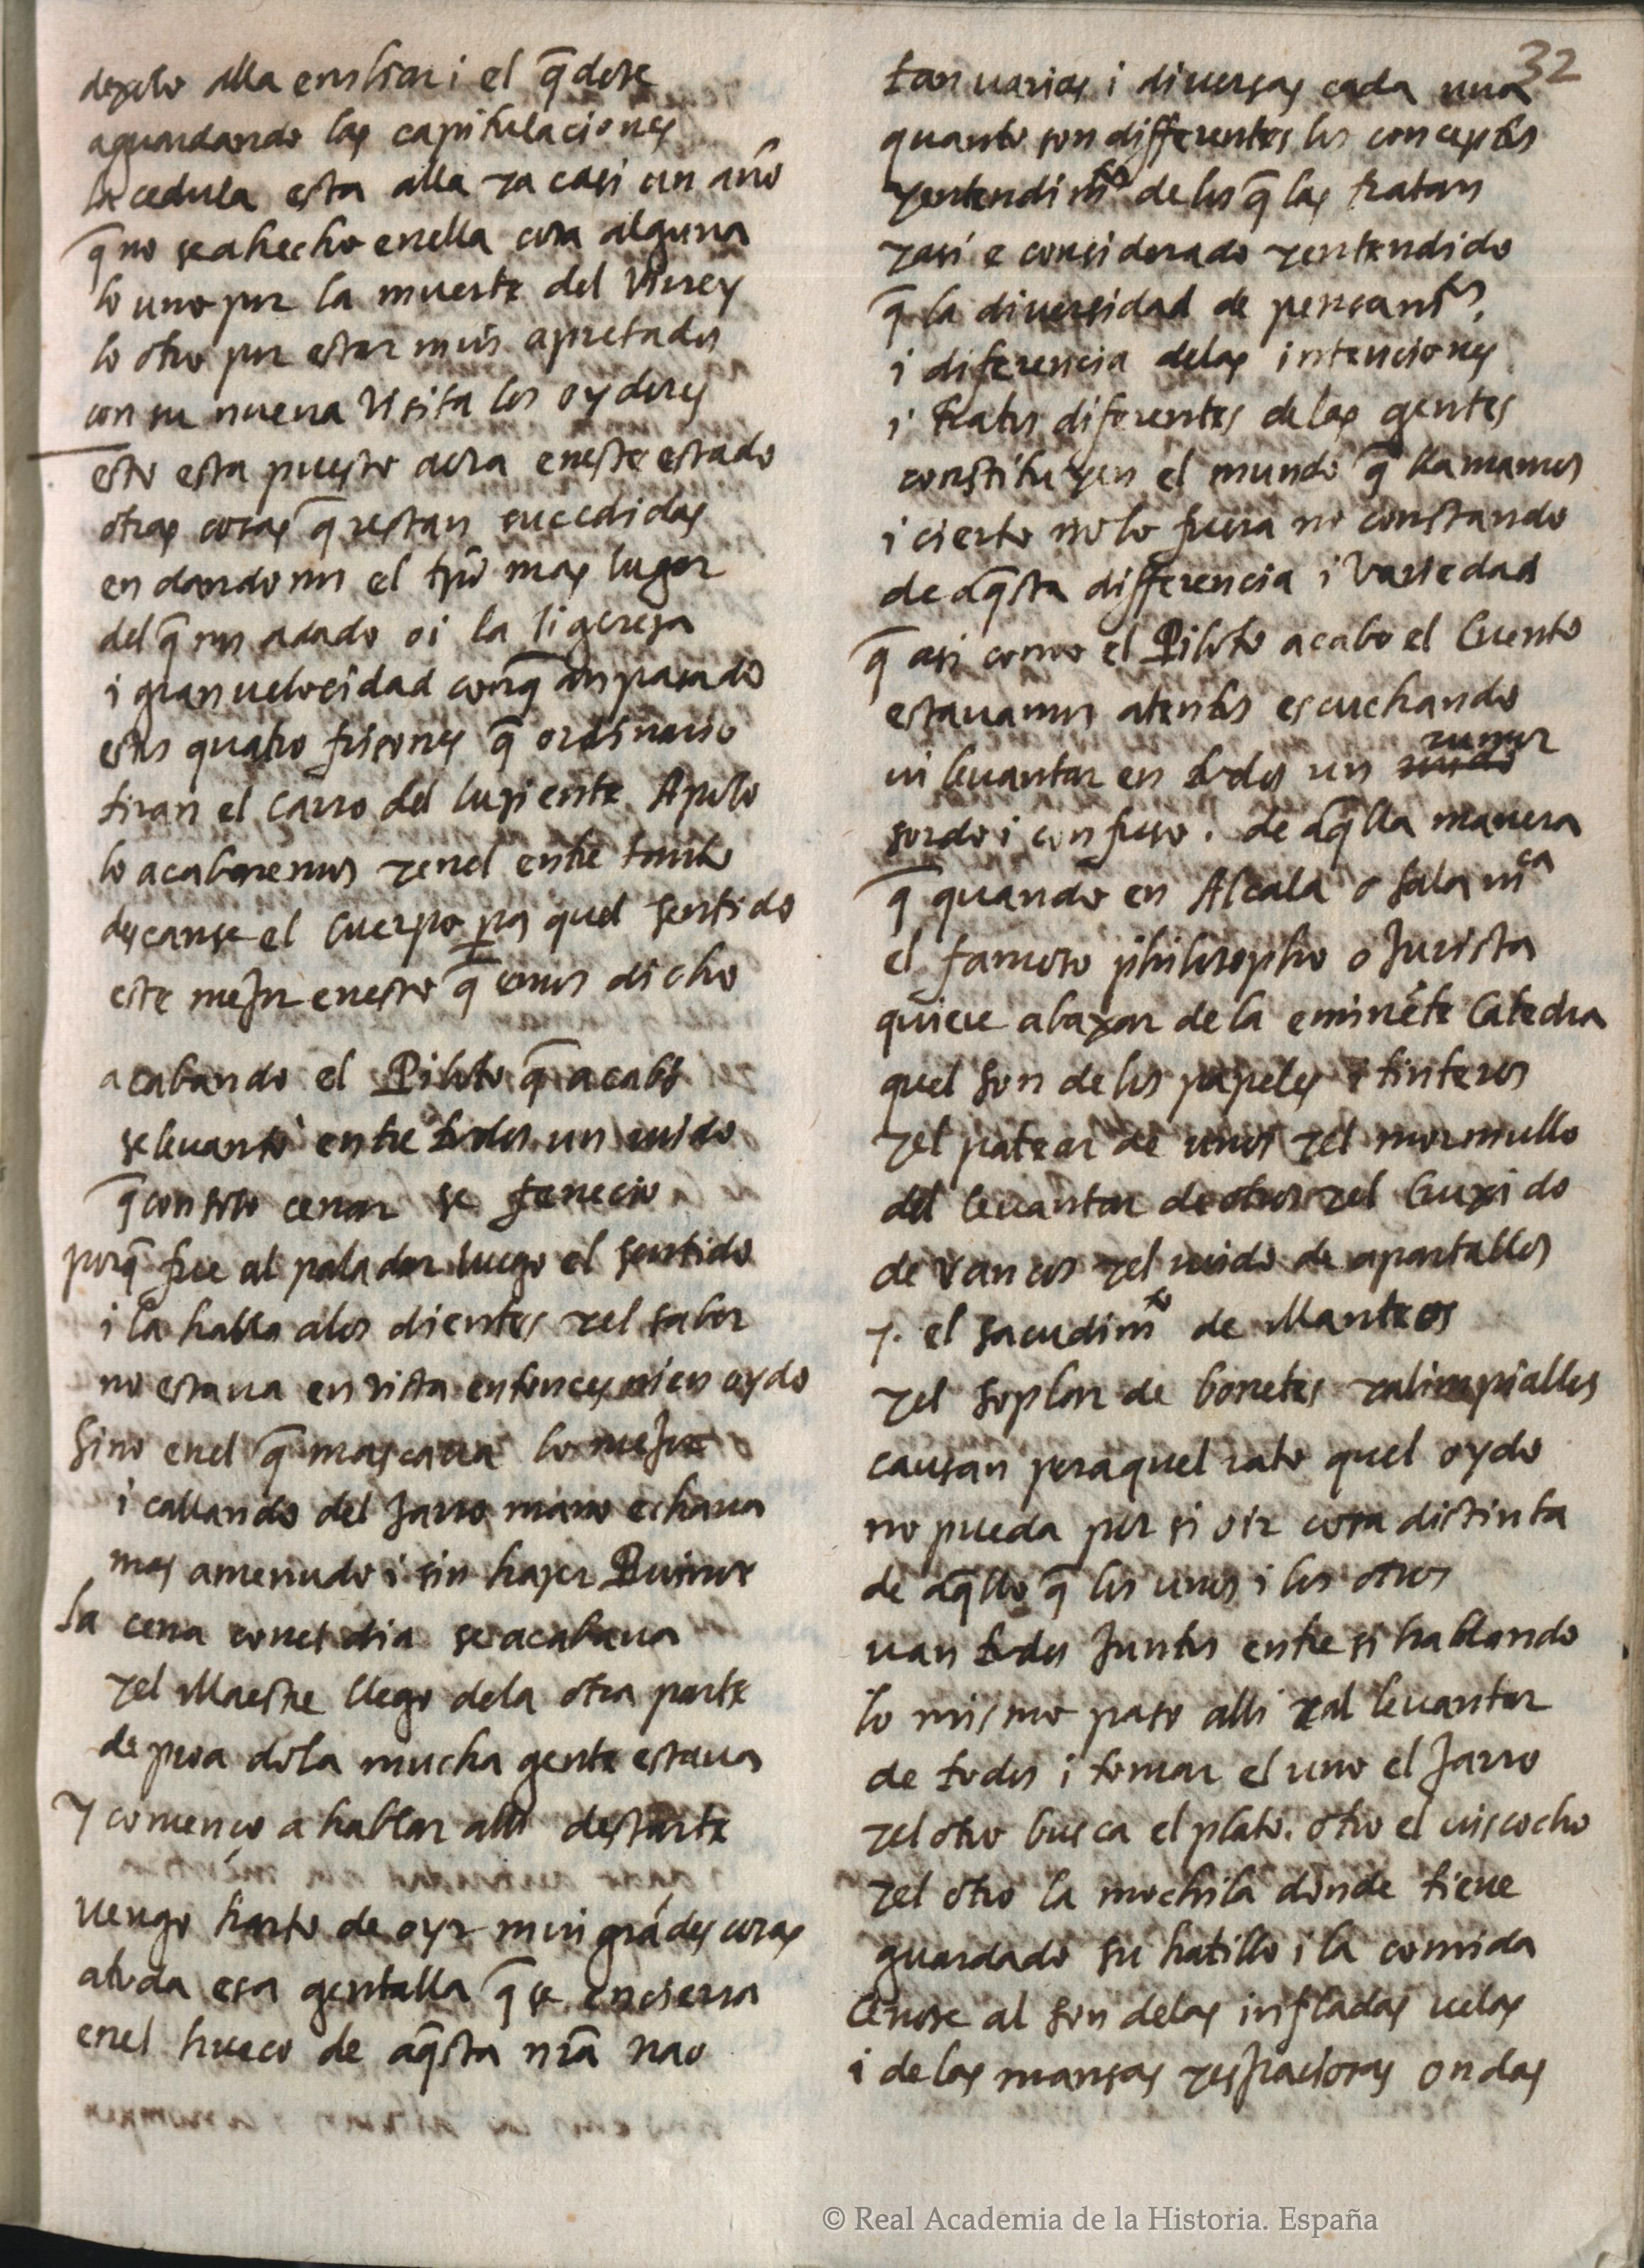 dexolo alla enshiar i el q̄dose
aguardando las capitulaciones
la cedula esta alla ya casi un año
q̄ no se a hecho enella cosa alguna
lo uno por la muerte del Virrey
lo otro por estar mui apretados
con su nueva Visita los oydores
esto esta puesto aora eneste estado
otras cosas q̄ restan sucedidas
en dandonos el tp̄o mas lugar
del q̄ nos a dado oi la ligereza
i gran velocidad conq̄ an pasado
estos quatro frisones q̄ ordinario
tiran el Carro del luziente Apolo
lo acabaremos yenel entre tanto
descanse el Cuerpo pos quel sentido
este mejor enesto q̄ emos dicho
acabando el Piloto q̄ acabó
se levantó entre todos un ruido
q̄ con solo cenar se fenecio
porq̄ fue al paladar luego el sentido
i la habla alos dientes yel sabor
no estava en vista entonces ni en oydo
Sino enel q̄ mascava lo mejor
i callando del Jarro mano echava
mas amenudo i sin hazer Rumor
La cena conel dia se acabava
yel Maestre llego dela otra parte
de proa dola mucha gente estava
Y començo a hablar alli destarte
vengo harto de oyr mui grādes cosas
atoda esa gentalla q̄ se encierra
enel hueco de aq̄sta nrā nao
32
tan varias i diversas cada una
quanto son differentes los conceptos
yentendimto de los q̄ las tratan
yasi e considerado yentendido
q̄ la diversidad de pensamtos,
i diferencia delas intenciones
i tratos diferentes de las gentes
constituyen el mundo q̄ llamamos
i cierto no lo fuera no constando
de aq̄sta differencia i Variedad
q̄ asi como el Piloto acabo el Cuento
estavamos atentos escuchando
vi levantar en todos un ruido rumor
sordo i confuso. de aq̄lla manera
q̄ quando en Alcala o Salamca
el famoso philosopho o Jurista
quiere abaxar de la eminēte Catedra
quel son de los papeles i tinteros
yel patear de unos yel mormullo
del levantar de otros yel Cruxido
de vancos yel ruido de apartallos
y. el sacudimto de Manteos
yel soplar de bonetes yalimpiallos
causan peraquel rato quel oydo
no pueda por si oir cosa distinta
de aq̄llo q̄ los unos i los otros
van todos Juntos entre si hablando
lo mismo paso alli yal levantar
de todos i tomar el uno el Jarro
yel otro busca el plato. otro el viscocho
yel otro la mochila donde tiene
guardado su hatillo i la comida
Cenose al son delas infladas velas
i de las mansas yespaciosas ondas
© Real Academia de la Historia. España